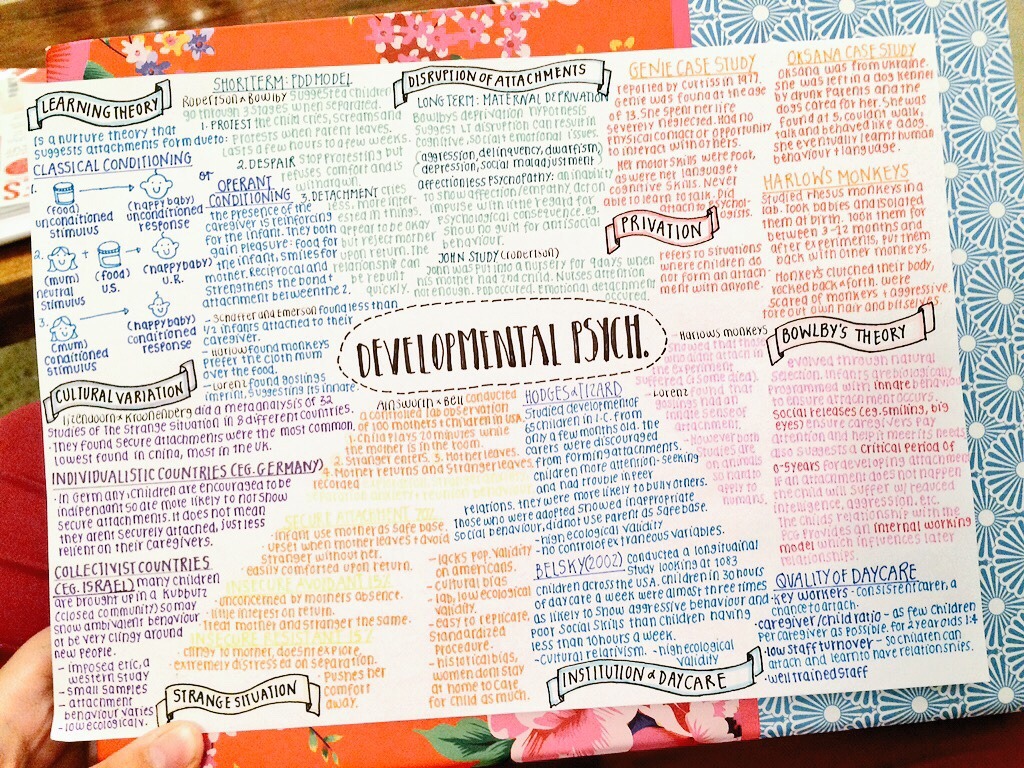 DEVELOPMENTAL PSYCH.
LEARNING THEORY
is a nurture theory that
suggests attachments form due to:
CLASSICAL CONDITIONING
or
1.
(food)
unconditioned
stimulus
(happy baby)
unconditioned
response
2.
(mum)
neutral
stimulus
+
(food)
U.S.
(happy baby)
U.R.
3.
(mum)
conditioned
stimulus
(happy baby)
conditioned
response
OPERANT
CONDITIONING
the presence of the
caregiver is reinforcing
for the infant. They both
gain pleasure: food for
the infant, smiles for
mother. Reciprocal and
strengthens the bond +
attachment between the 2.
- Schaffer and Emerson found less than
1/2 infants attached to their
caregiver.
- Harlow found monkeys
prefer the cloth mum
over the food.
- Lorenz found goslings
imprint, suggesting its innate.
SHORT TERM: PDD MODEL
Robertson & Bowlby suggested children
go through 3 stages when separated.
1. PROTEST the child cries, screams and
protests when parent leaves.
Lasts a few hours to a few weeks.
2. DESPAIR stop protesting but
refuses comfort and is
withdrawn.
3. DETACHMENT cries
less, more inter
ested in things.
appear to be okay
but reject mother
upon return. The
relationship can
be rebuilt
quickly.
DISRUPTION OF ATTACHMENTS
LONG TERM: MATERNAL DEPRIVATION
Bowlbys deprivation hypothesis
suggest LT disruption can result in
cognitive, social + emotional issues.
(aggression, delinquency, dwarfism,
depression, social maladjustment)
affectionless psychopathy: an inability
to show affection/empathy, act on
impulse with little regard for
psychological consequence. eg.
show no guilt for antisocial
behaviour.
JOHN STUDY (robertson)
John was put into a nursery for 9 days when
his mother had a 2nd child. Nurses attention
not enough. PDD occured. Emotional detachment
occured.
GENIE CASE STUDY
reported by Curtiss in 1977.
Genie was found at the age
of 13. She spent her life
severely neglected. Had no
physical contact or opportunity
to interact with others.
Her motor skills were poor,
as were her language +
cognitive skills. Never
able to learn to talk. Did
attach to psychol-
ogists.
PRIVATION
refers to situations
where children do
not form an attach-
ment with anyone.
OKSANA CASE STUDY
Oksana was from Ukraine.
she was left in a dog kennel
by drunk parents and the
dogs cared for her. She was
found at 5, couldnt walk,
talk and behaved like a dog.
she eventually learnt human
behaviour + language.
HARLOW'S MONKEYS
Studied rhesus monkeys in a
lab. Took babies and isolated
them at birth. Took them for
between 3-12 months and
after experiments, put them
back with other monkeys.
Monkeys clutched their body,
rocked back + forth. were
scared of monkeys + aggressive.
tore out own hair and bit arms.
BOWLBY'S THEORY
evolved through natural
selection. Infants are biologically
programmed with innate behaviour
to ensure attachment occurs.
social releases (eg. smiling, big
eyes) ensure caregivers pay
attention and help it meet its needs
also suggests a critical period of
0-5 years for developing attachment
if an attachment does not happen
the child will suffer w/ reduced
intelligence, aggression, etc.
the childs relationship with the
PCG provides an internal working
model which influences later
relationships.
- Harlows monkeys
showed that those
who didnt attach in
the experiment
suffered (same idea).
- Lorenz found that
goslings had an
innate sense of
attachment.
- However both
studies are
on animals
so hard to
apply to
humans.
CULTURAL VARIATION
Itzendoorn & Kroonenberg did a metaanalysis of 32
studies of the strange situation in 8 different countries.
- They found secure attachments were the most common,
lowest found in china, most in the UK.
INDIVIDUALISTIC COUNTRIES (EG. GERMANY)
- In Germany, children are encouraged to be
indipendant so are more likely to not show
secure attachments. It does not mean
they arent securely attached, just less
relient on their caregivers.
COLLECTIVIST COUNTRIES
(EG. ISRAEL) many children
are brought up in a Kubbutz
(closed community) so may
show ambivalent behaviour
or be very clingy around
new people.
- imposed etic, a
western study
- small samples
- attachment
behaviour varies
- low ecological v.
Ainsworth & Bell conducted
a controlled lab observation
of 100 mothers + children in USA.
1. child plays 20 minutes while
the mother is in the room.
2. Stranger enters. 3. Mother leaves.
4. Mother returns and stranger leaves.
recorded exploration, stranger anxiety,
separation anxiety + reunion behaviour.
SECURE ATTACHMENT 70%
- infant use mother as safe base.
- upset when mother leaves + avoid
stranger without her.
- easily comforted upon return.
INSECURE AVOIDANT 15%
- unconcerned by mothers absence.
- little interest on return.
- Treat mother and stranger the same.
INSECURE RESISTANT 15%
- clingy to mother, doesnt explore,
extremely distressed on separation.
- Pushes her
comfort
away.
STRANGE SITUATION
- lacks pop. validity
on americans.
- cultural bias
- lab, low ecological
validity.
- easy to replicate,
standardized
procedure.
- historical bias,
women dont stay
at home to care
for child as much.
HODGES & TIZARD
Studied development of
65 children in i-c, from
only a few months old. the
carers were discouraged
from forming attachments.
Children more attention-seeking
and had trouble in peer
relations, they were more likely to bully others.
those who were adopted showed inappropriate
social behaviour, did not use parent as safe base.
- high ecological validity
- no control of extraneous variables.
BELSKY (2002) Conducted a longitudinal
study looking at 1083
children across the USA. Children in 30 hours
of daycare a week were almost three times
as likely to show aggressive behaviour and
poor social skills than children having
less than 10 hours a week.
- Cultural relativism. - high ecological
validity
INSTITUTION & DAYCARE
QUALITY OF DAYCARE
- key workers - consistent carer, a
chance to attach.
- caregiver/child ratio - as few children
per caregiver as possible, for 2 year olds 1:4
- low staff turnover - so children can
attach and learn to have relationships.
- well trained staff